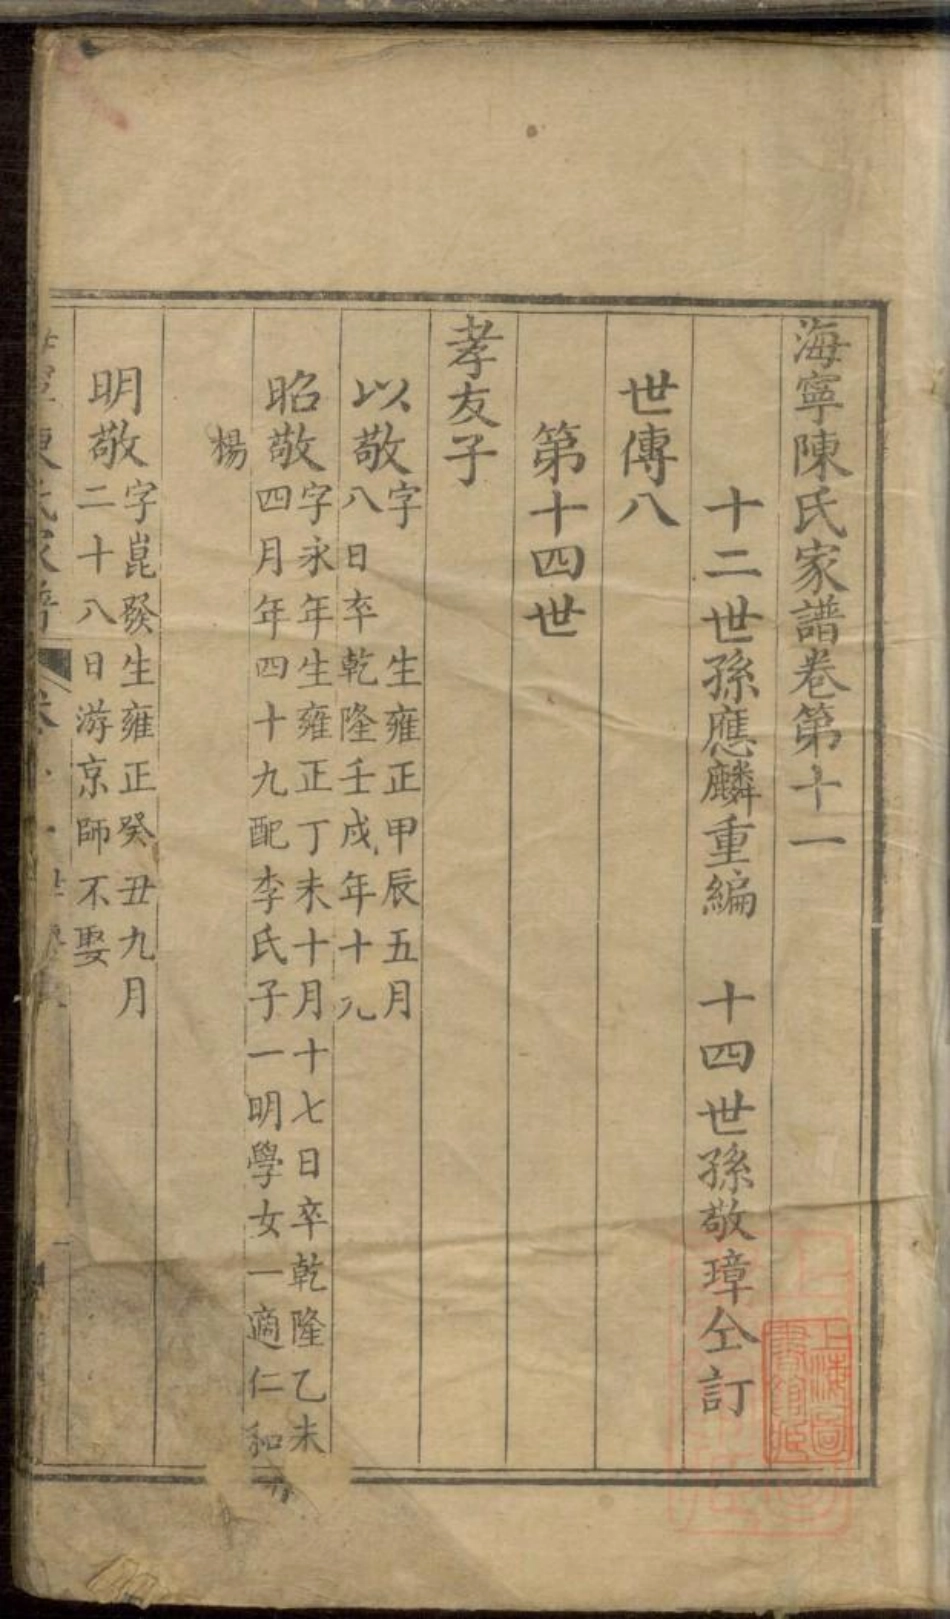 海寧陳氏家譜卷第十一
十二世孫應麟重編　十四世孫敬璋仝訂
世傳八
第十四世
孝友子
以敬
字　　生雍正甲辰五月
八日卒乾隆壬戌年十九
昭敬
字永年生雍正丁未十月十七日卒乾隆乙未
四月年四十九配李氏子一明學女一適仁和
楊
明敬
字崑發生雍正癸丑九月
二十八日游京師不娶
陳氏家譜
上海圖書館藏